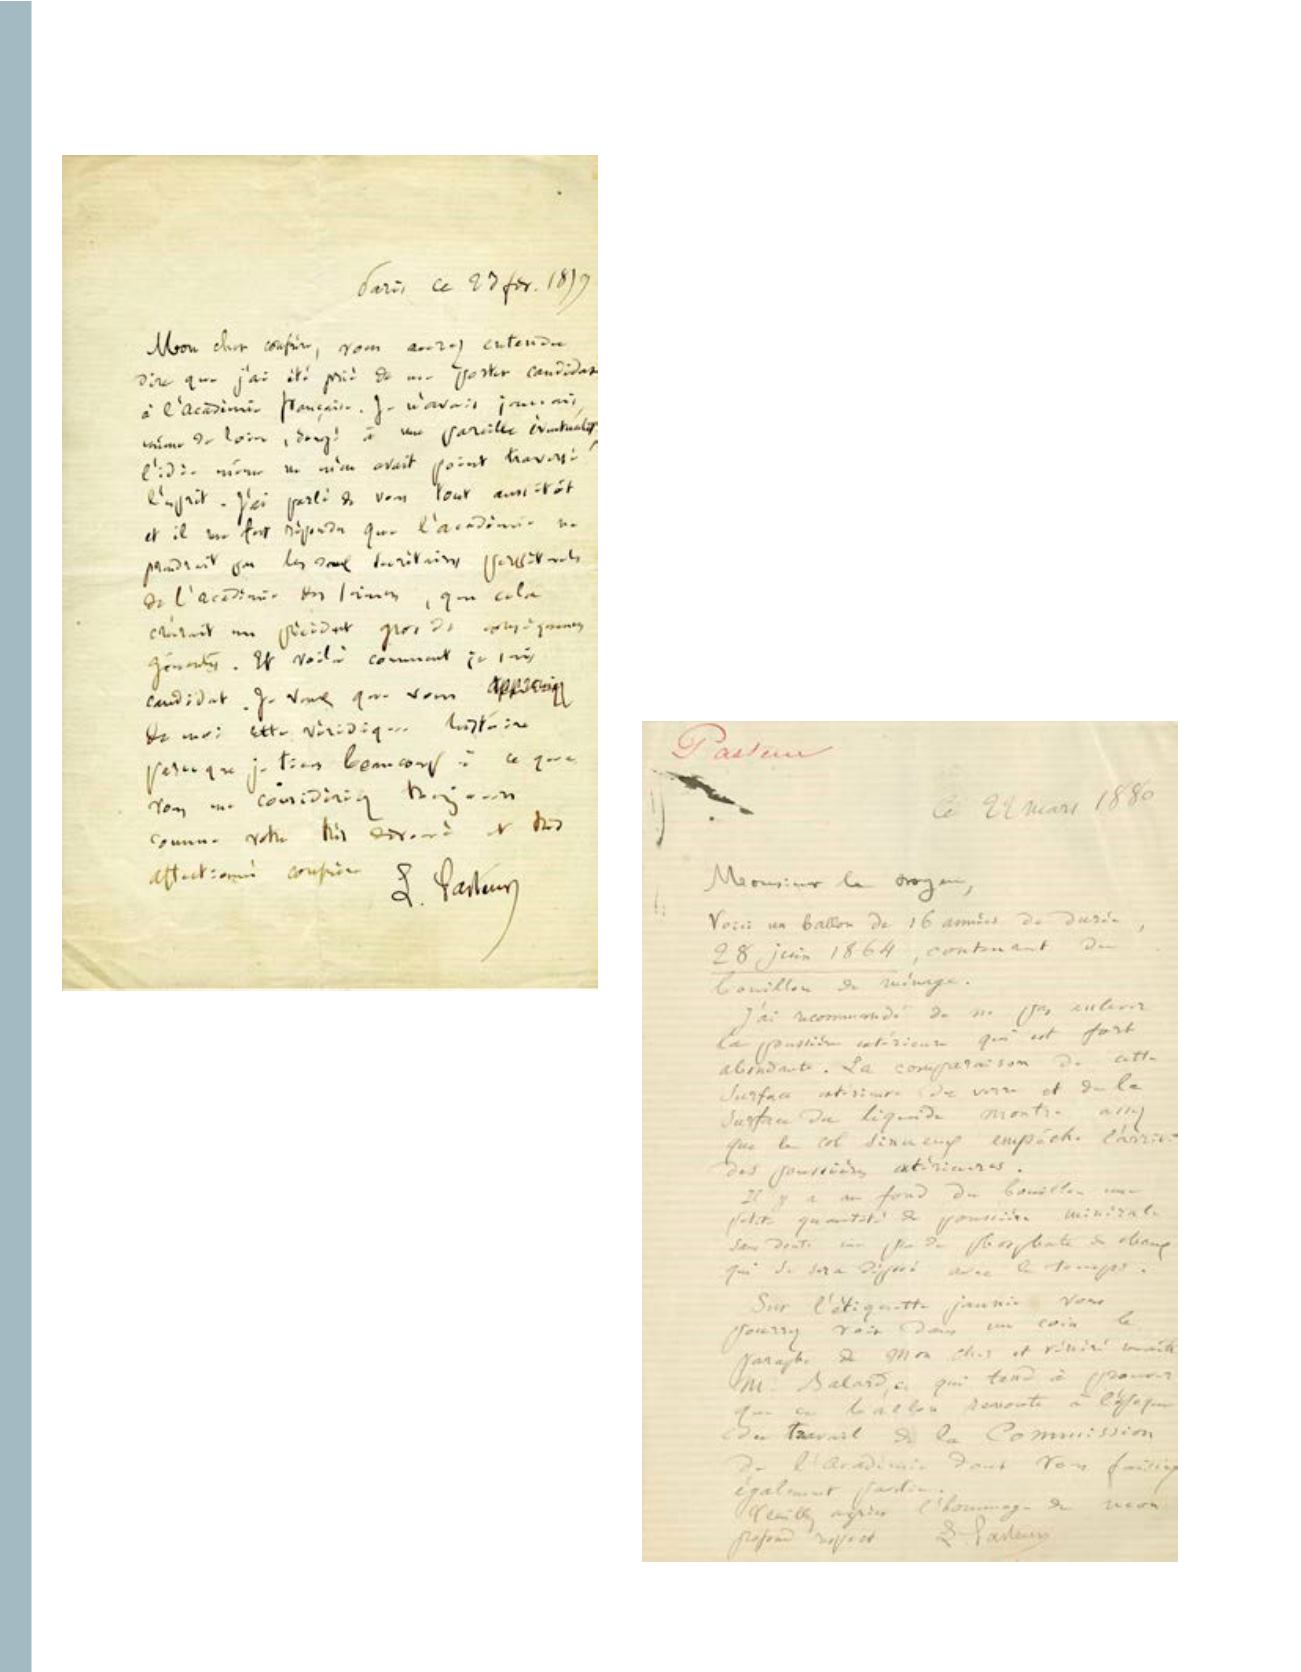 Paris ce 27 fév. 1879
Mon cher confrère, vous aurez entendu
dire que j'ai été prié de me porter candidat
à l'Académie française. Je n'avais jamais,
même de loin, songé à une pareille éventualité
l'idée même ne m'en avait point traversé
l'esprit. J'ai parlé de vous tout aussitôt
et il me fut répondu que l'académie ne
prendrait pas les deux secrétaires perpétuels
de l'Académie des sciences, que cela
créerait un précédent gros de conséquences
. Et voilà comment je suis
candidat. Je veux que vous appreniez
de moi cette véridique histoire
parce que je tiens beaucoup à ce que
vous me considériez toujours
comme votre très dévoué et très
affectionné confrère
L. Pasteur
Pasteur
Ce 22 mars 1880
Monsieur le doyen,
Voici un ballon de 16 années de durée,
28 juin 1864, contenant du
bouillon de ménage.
J'ai recommandé de ne pas enlever
la poussière extérieure qui est fort
abondante. La comparaison de cette
surface extérieure du verre et de la
surface du liquide montre assez
que le col sinueux empêche l'arrivée
des poussières extérieures.
Il y a au fond du bouillon une
petite quantité de poussière minérale
sans doute un peu de phosphate de chaux
qui se sera déposé avec le temps.
Sur l'étiquette jaunie vous
pourrez voir dans un coin le
paraphe de mon cher et vénéré maître
M. Balard, ce qui tend à prouver
que ce ballon remonte à l'époque
du travail de la Commission
de l'Académie dont vous faisiez
également partie.
Veuillez agréer l'hommage de mon
profond respect
L. Pasteur